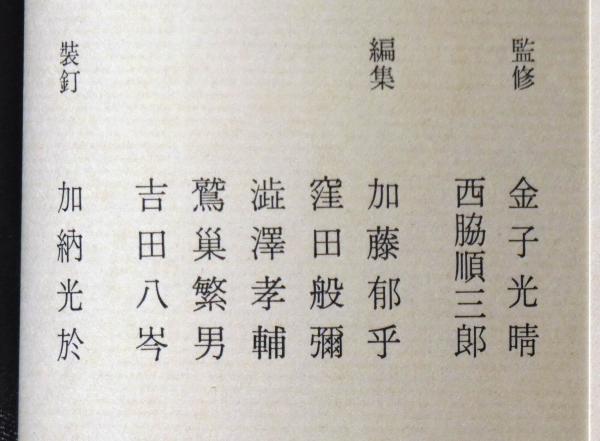 監修 金子光晴
西脇順三郎
編集 加藤郁乎
窪田般彌
澁澤孝輔
鷲巣繁男
吉田八岑
裝釘 加納光於